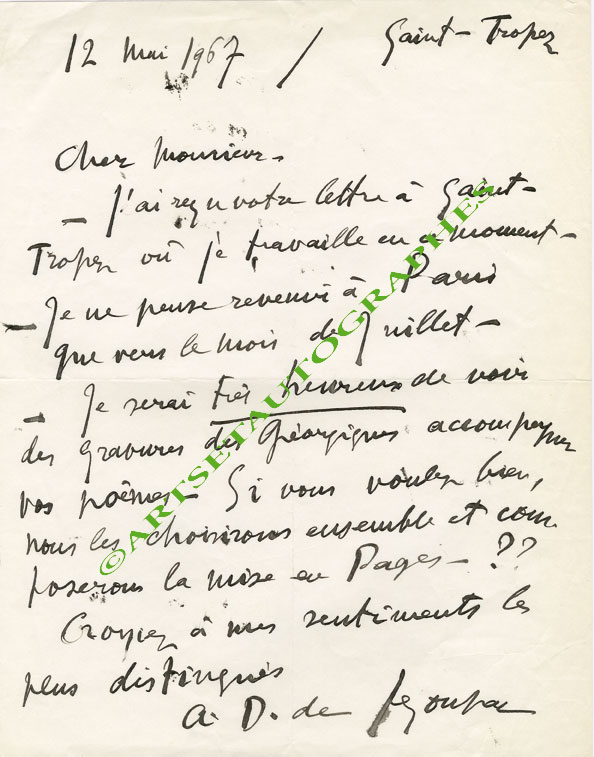 12 Mai 1967 / Saint-Tropez
Cher Monsieur -
— J'ai reçu votre lettre à Saint-
Tropez où je travaille en ce moment -
— Je ne pense revenir à Paris
que vers le mois de Juillet -
— Je serai très heureux de voir
des gravures des Géorgiques accompagner
vos poèmes - Si vous voulez bien,
nous les choisirons ensemble et com
poserons la mise en Pages - ??
Croyez à mes sentiments les
plus distingués
A. D. de Segonzac
©ARTSETAUTOGRAPHES